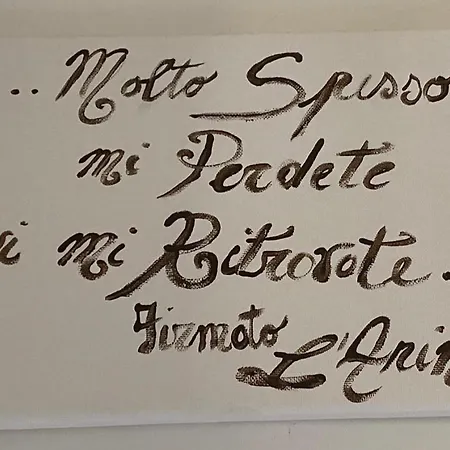 .. Molto Spesso
mi Perdete
mi Ritrovate .
Firmato
L'Anim